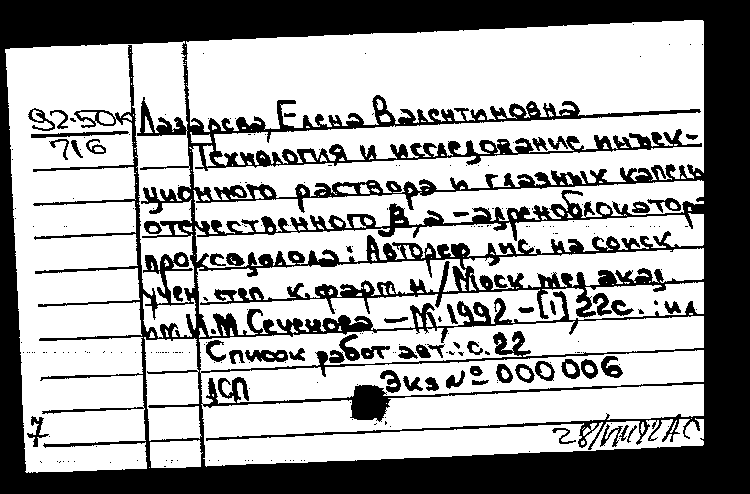 92-50К
716
Лазарева, Елена Валентиновна
Технология и исследование инъек-
ционного раствора и глазных капель
отечественного β,α-адреноблокатора
проксодолола: Автореф. дис. на соиск.
учен. степ. к. фарм. н./Моск. мед. акад.
им. И.М. Сеченова.-М., 1992.-[1], 22с. : ил
Список работ авт.: с.22
ДСП Экз № 000006
7 28/VIII92 АС